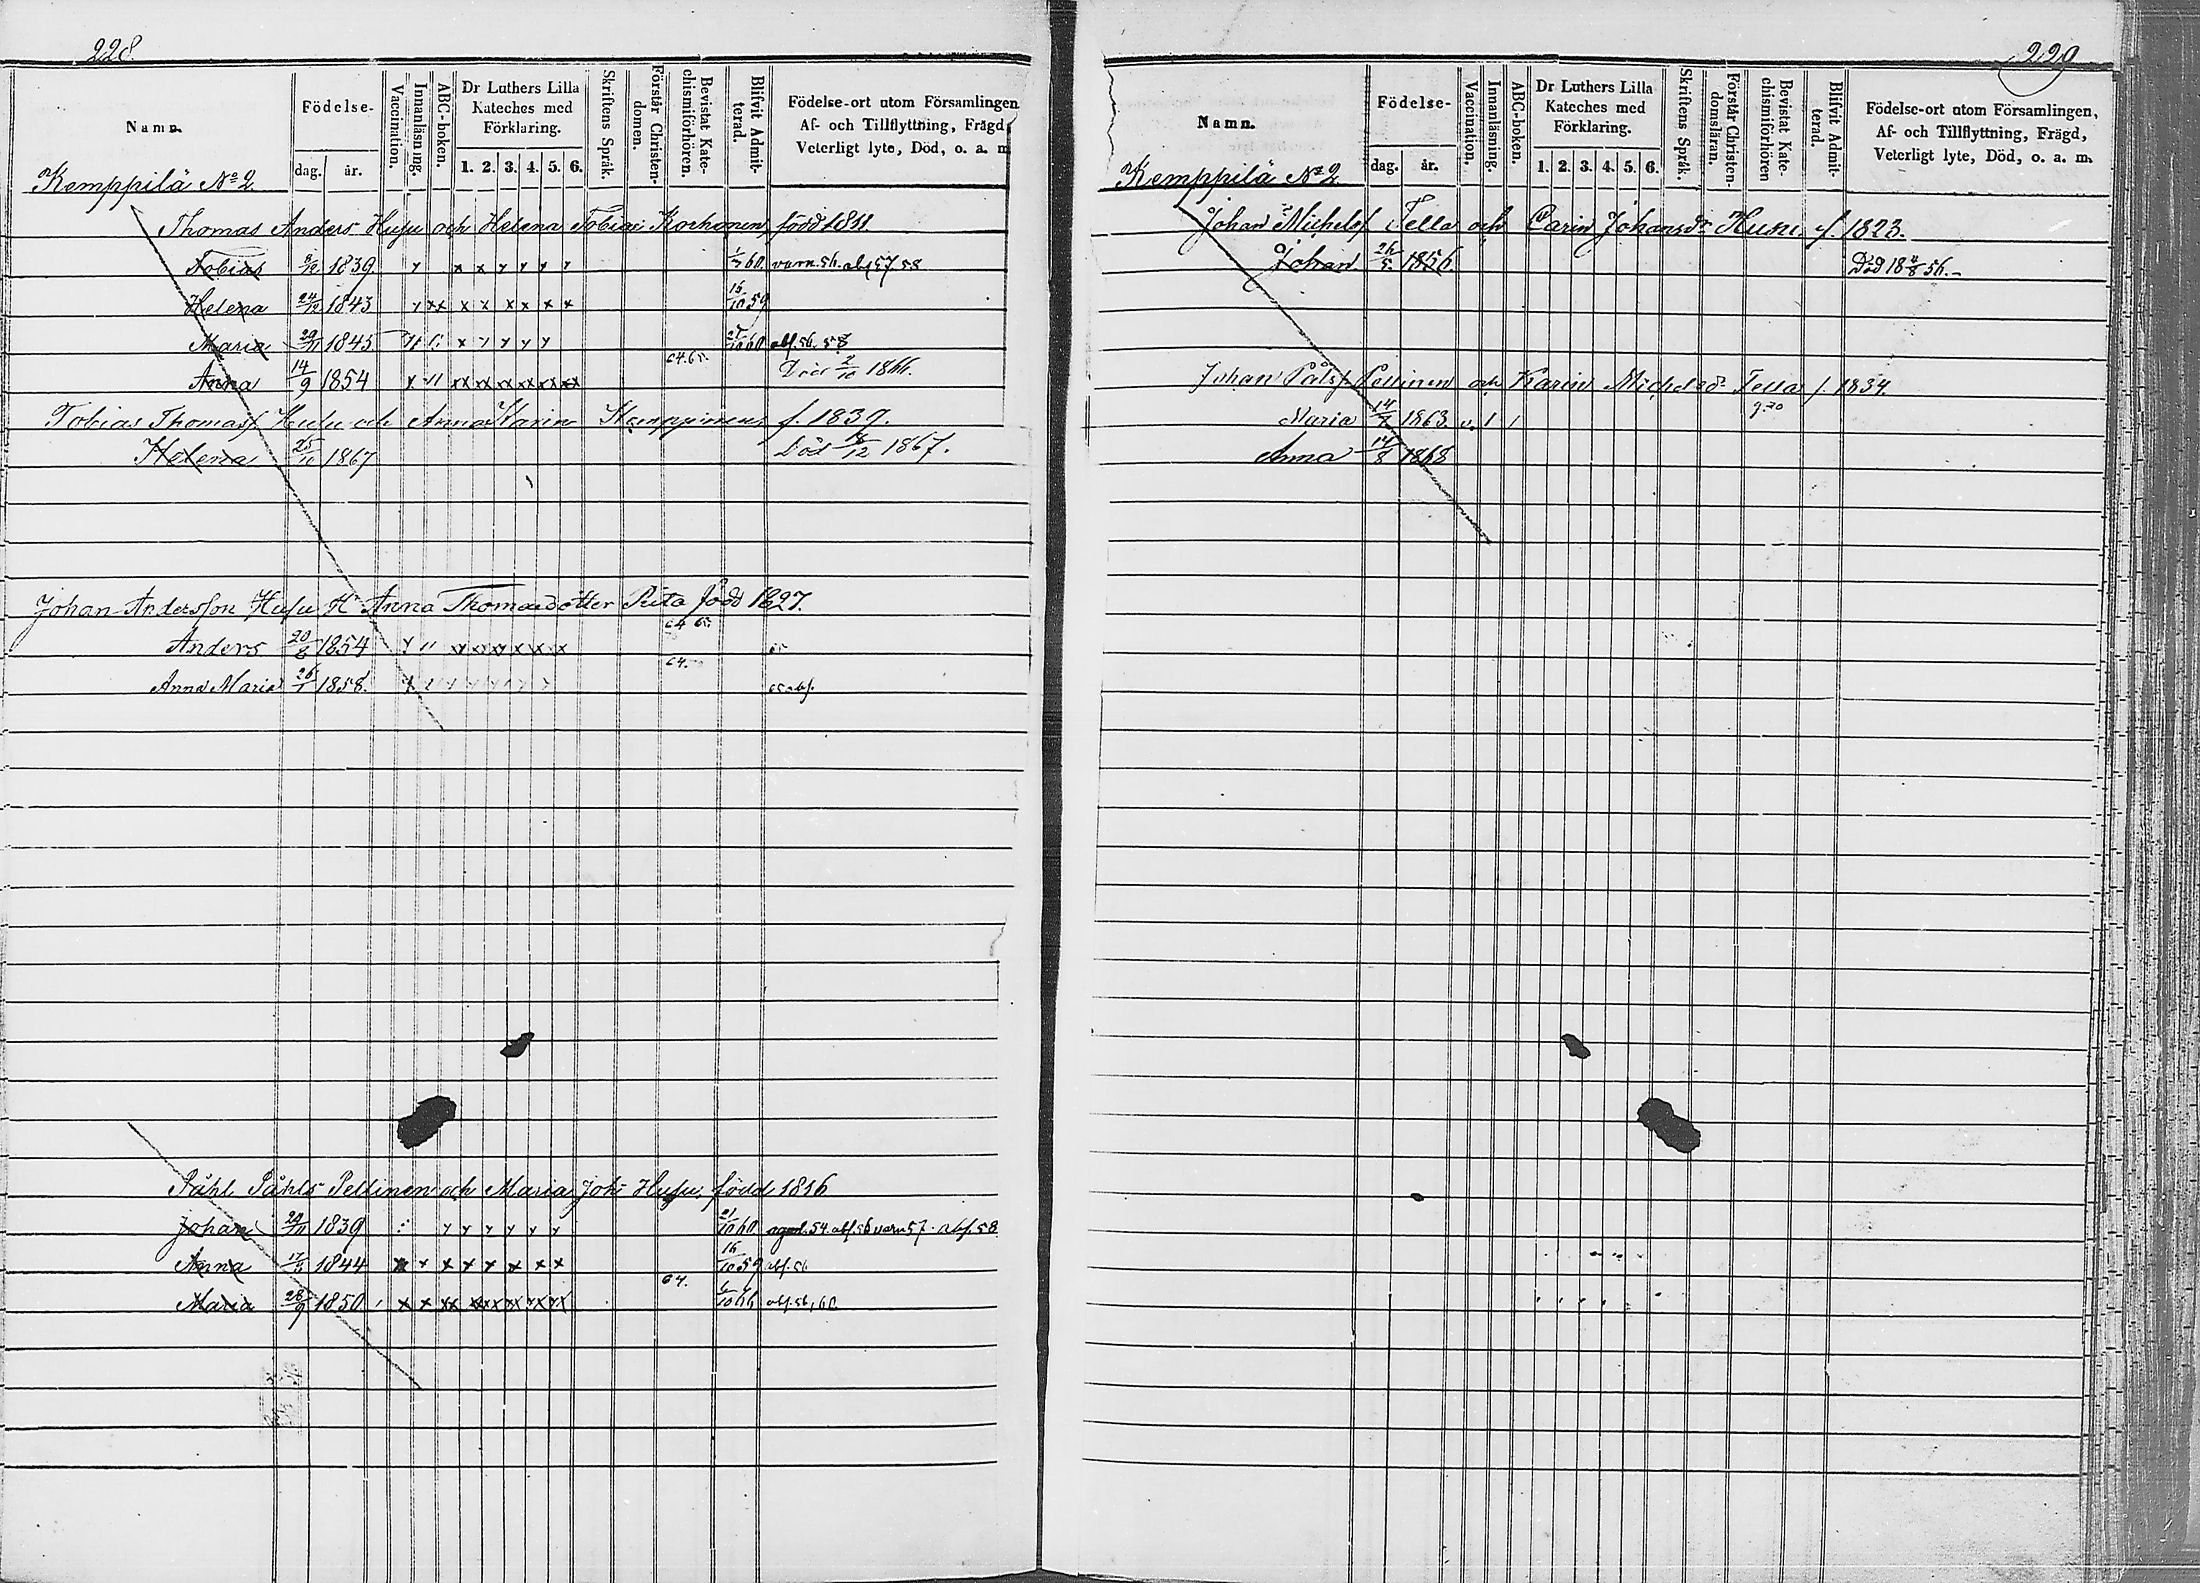 228.
Namn.
Födelse-
dag.
år.
Vaccination.
Innanläsning.
ABC-boken.
Dr Luthers Lilla
Kateches med
Förklaring.
1. 2. 3. 4. 5. 6.
Skriftens Språk.
Förstår Christen-
domen.
Bevistat Kate-
chismiförhören.
Blifvit Admit-
terad.
Födelse-ort utom Församlingen
Af- och Tillflyttning, Frägd,
Veterligt lyte, Död, o. a. m
Kemppilä No 2
Thomas Anders Husu och Helena Tobias Korhonen född 1811.
Tobias 1839 57. 58
Helena 24/12 1843 16/10 59
Maria 1845 abs. 56. 58
64. 65.
Anna 14/9 1854 Död 2/10 1866.
Tobias Thomass Husu och Anna Karin Kemppinen f. 1839.
Helena 25/10 1867 Död 18/12 1867.
Johan Andersson Husu H Anna Thomasdotter Rita född 1827.
64 65.
Anders 20/8 1854
64.
Anna Maria 26/1 1858. 65 abs.
Påhl Påhls Pellinen och Maria Joh: Husu, född 1816
Johan 1839 21/10 60 54. abs. 56 varn 57. abs. 58
Anna 17/3 1844 16/10 59 abs. 56
64.
Maria 28/9 1850 abs. 56, 60.
229
Namn.
Födelse-
dag.
år.
Vaccination.
Innanläsning.
ABC-boken.
Dr Luthers Lilla
Kateches med
Förklaring.
1. 2. 3. 4. 5. 6.
Skriftens Språk.
Förstår Christen-
domsläran.
Bevistat Kate-
chismiförhören
Blifvit Admit-
terad.
Födelse-ort utom Församlingen,
Af- och Tillflyttning, Frägd,
Veterligt lyte, Död, o. a. m.
Kemppilä No 2.
Johan Michelss Tella och Carin Johansdr Husu f. 1823.
Johan 26/5 1856. Död 18 11/8 56.
Johan Pålss Pellinen och Karin Michelsd. Tella f. 1834.
Maria 14/7 1863 v. 1 1
Anna 14/8 1868